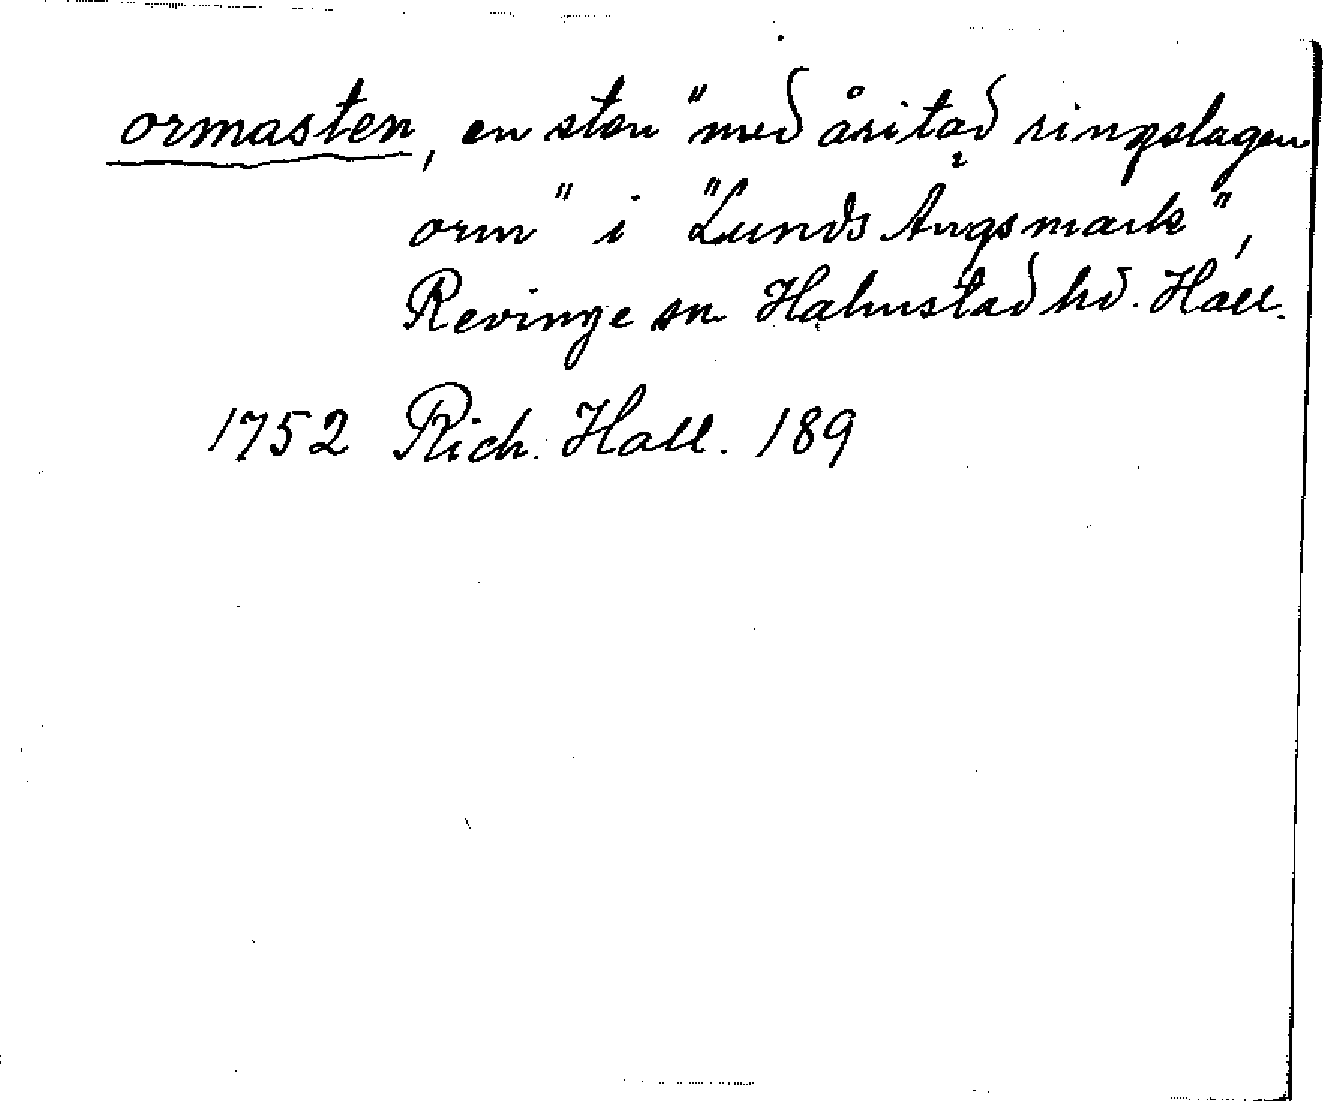 ormasten, en sten "med åritad ringslagen
orm" i "Lunds Ängsmark",
Revinge sn Halmstad hd. Hall.
1752 Rich. Hall. 189